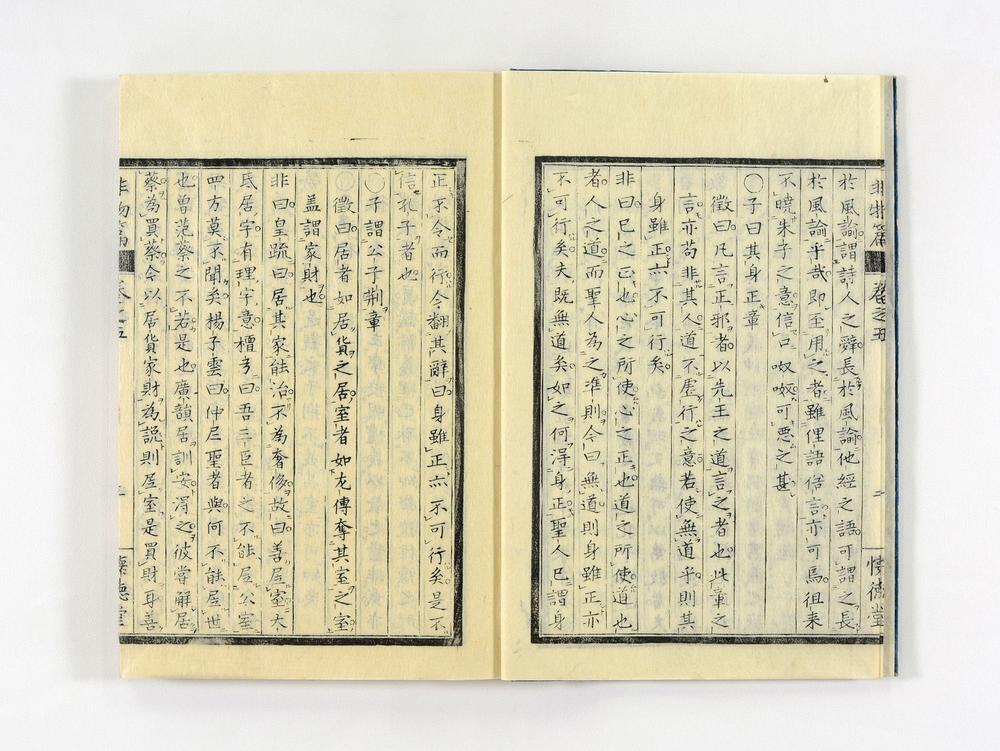 非物篇 卷之五 懷德堂
於風諭謂詩人之辭長於風諭他經之語可謂之長
於風諭乎哉即至用之者雖俚語俗言亦可焉徂來
不曉朱子之意信口呶呶可惡之甚
〇子曰其身正章
徵曰凡言正邪者以先王之道言之者也此章之
言亦苟非其人道不虛行之意若使無道乎則其
身雖正亦不可行矣
非曰已之正也心之所使心之正也道之所使道也
者人之道而聖人為之準則今曰無道則身雖正亦
不可行矣夫既無道矣如之何得身正聖人已謂身
正不令而行今翻其辭曰身雖正亦不可行矣是不
信孔子者也
〇子謂公子荆章
徵曰居者如居貨之居室者如左傳奪其室之室
蓋謂家財也
非曰皇疏曰居其家能治不為奢侈故曰善居室大
氐居字有理字意檀弓曰吾三臣者之不能居公室
四方莫不聞矣揚子雲曰仲尼聖者與何不能居世
也曾范蔡之不若是也廣韻居訓安得之彼嘗解居
蔡為買蔡今以居貨家財為說則居室是買財耳善
非物篇 卷之五 懷德堂